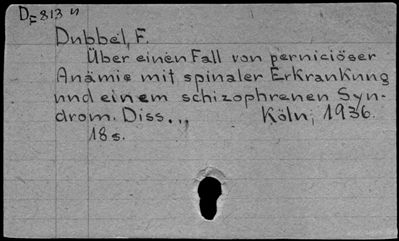 D=813 n
Dubbel, F.
Über einen Fall von perniciöser
Anämie mit spinaler Erkrankung
und einem schizophrenen Syn-
drom. Diss... Köln, 1936.
18 s.